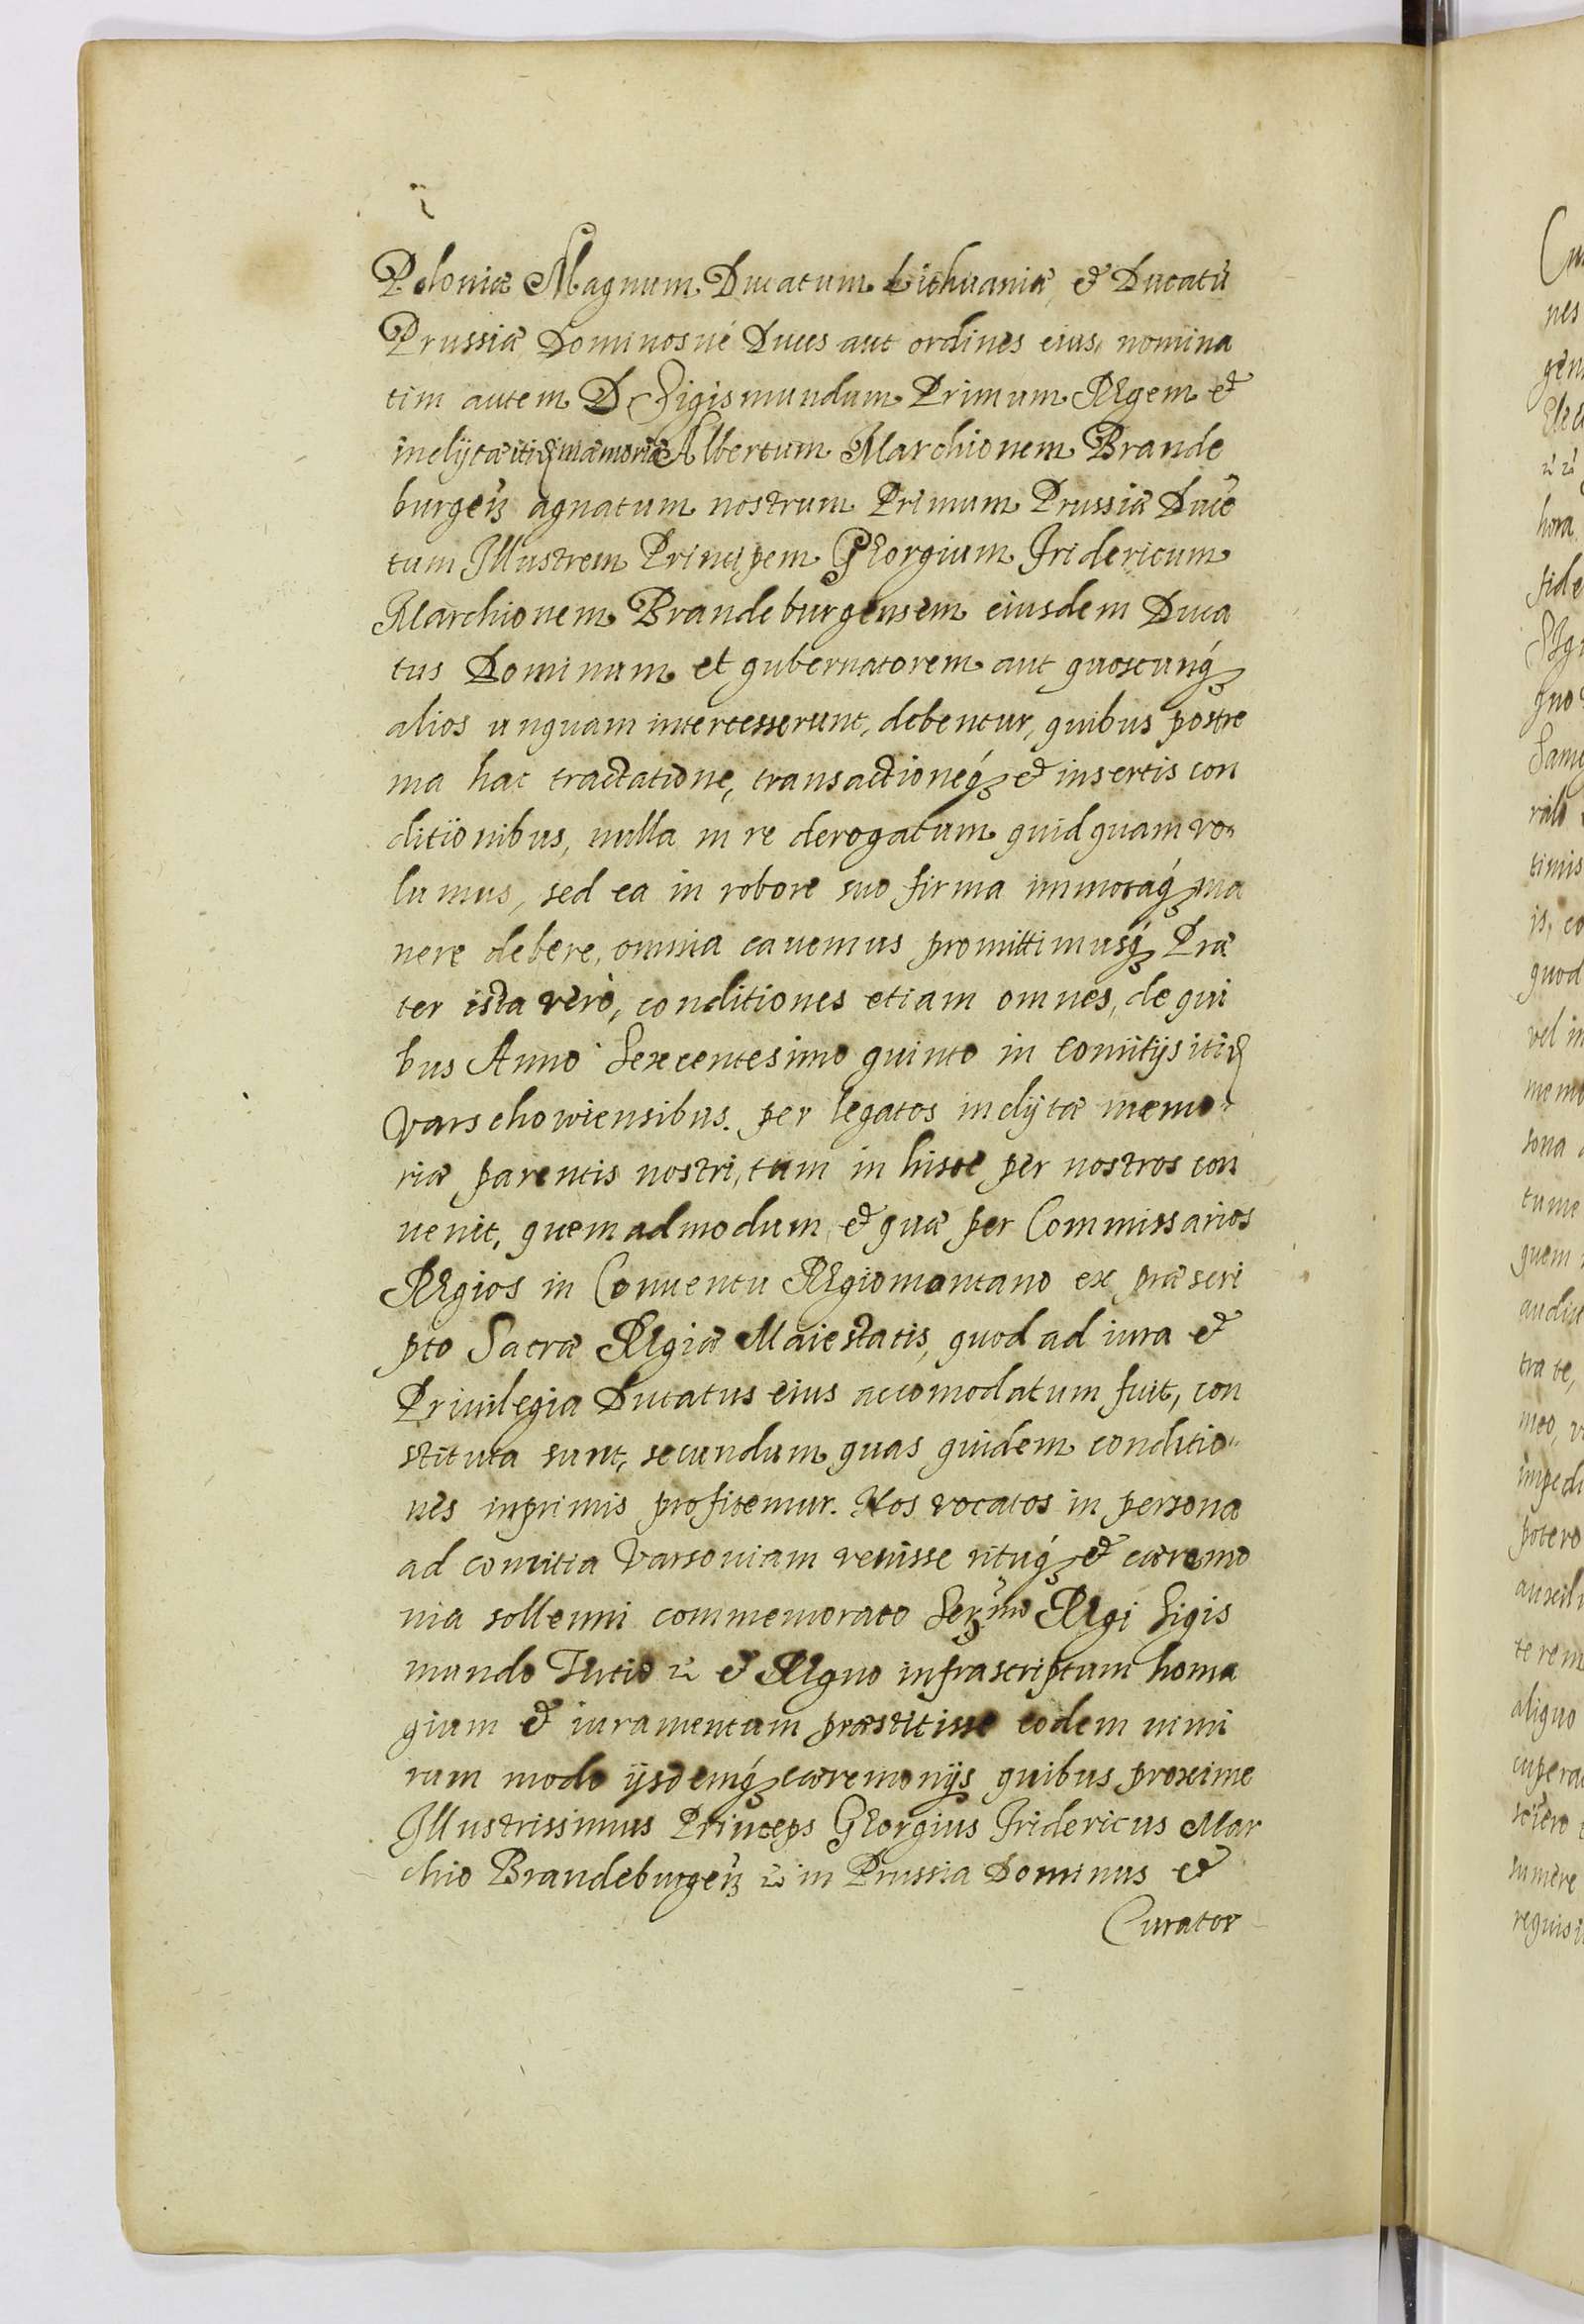 Poloniæ Magnum Ducatum Lithuaniæ, & Ducatũ
Prussiæ Dominosué Duces aut ordines eius, nomina
tim autem D Sigismundum Primum Regem &
inclijtæ itidẽ mæmoriæ Albertum Marchionem Brande
burgeñ agnatum nostrum Primum Prussiæ Ducẽ
tum Illustrem Principem GEorgium Fridericum
Marchionem Brandeburgensem eiusdem Duca
tus Dominum et gubernatorem aut quoscunq́
alios unquam intercesserunt, debentur, quibus postre
ma hac tractatione, transactioneq́ & insertis con
ditionibus, nulla in re derogatum quidquam vo
lumus, sed ea in robore suo firma immotaq́ ma
nere debere, omnia cauemus promittimusq́ Præ
ter ista verò, conditiones etiam omnes, de qui
bus Anno Sexcentesimo quinto in Comitijs itidẽ
Varschowiensibus. per legatos inclijtæ memo
riæ parentis nostri, tum in hisce per nostros con
uenit, quemadmodum & quæ per Commissarios
REgios in Conuentu REgiomontano ex præscri
pto Sacræ REgiæ Maiestatis, quod ad iura &
Priuilegia Ducatus eius accomodatum fuit, con
stituta sunt, secundum quas quidem conditio
nes inprimis profitemur. Nos vocatos in persona
ad comitia Varsouiam venisse rituq́ & cæremo
nia sollenni commemorato Serᵐᵒ REgi Sigis
mundo Tertio ꝛc̃ & REgno infrascriptum homa
gium & iuramentum præstitisse eodem nimi
rum modo ijsdemq́ cæremonijs quibus proxime
Illustrissimus Princeps GEorgius Fridericus Mar
chio Brandeburgeñ ꝛc̃ in Prussia Dominus &
Curator